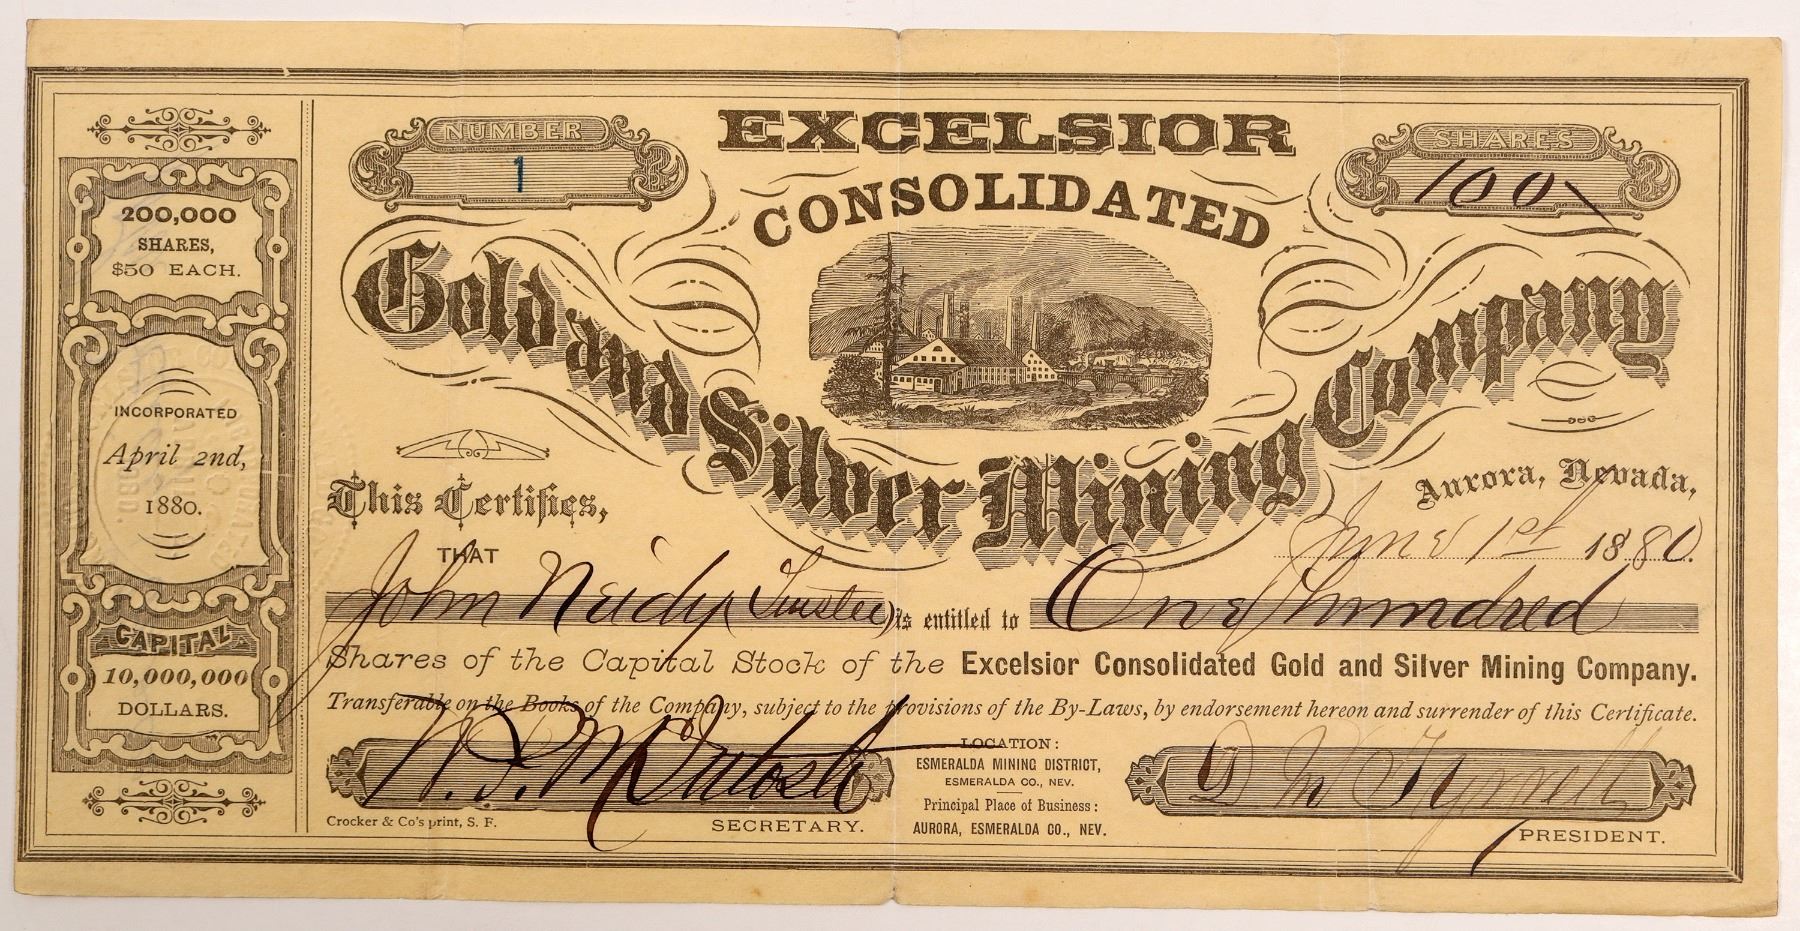 NUMBER
1
EXCELSIOR
CONSOLIDATED
Gold and Silver Mining Company
SHARES
100
200,000
SHARES,
$50 EACH.
INCORPORATED
April 2nd,
1880.
CAPITAL
10,000,000
DOLLARS.
This Certifies,
Aurora, Nevada,
June 1st 1880.
THAT
John Neidy (Trustee) is entitled to One hundred
Shares of the Capital Stock of the Excelsior Consolidated Gold and Silver Mining Company.
Transferable on the Books of the Company, subject to the provisions of the By-Laws, by endorsement hereon and surrender of this Certificate.
W. P. McIntosh
SECRETARY.
Crocker & Co's print, S. F.
LOCATION:
ESMERALDA MINING DISTRICT,
ESMERALDA CO., NEV.
Principal Place of Business:
AURORA, ESMERALDA CO., NEV.
D M Tyrrell
PRESIDENT.